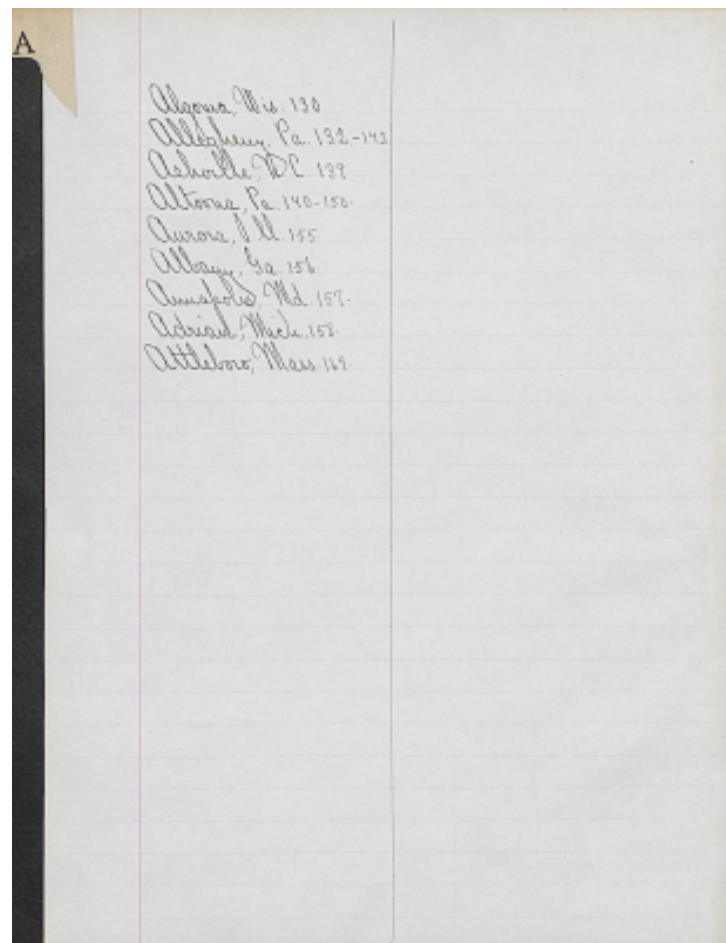 A
Algoma, Wis. 130
Allegheny, Pa. 132-142
Ashville, N.C. 139
Altoona, Pa. 140-150.
Aurora, Ill. 155
Albany, Ga. 156
Annapolis, Md. 157.
Adrian, Mich. 158.
Attleboro, Mass. 169.